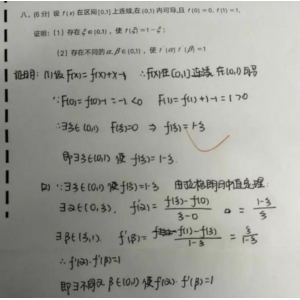 八、(6分) 设 f(x) 在区间[0,1]上连续,在(0,1)内可导,且 f(0)=0, f(1)=1,
证明:(1) 存在 ξ∈(0,1), 使 f(ξ)=1-ξ;
(2) 存在不同的 α,β∈(0,1), 使 f'(α)f'(β)=1
证明: (1) 设 F(x)=f(x)+x-1 ∴F(x)在[0,1]连续 在(0,1)可导
∵F(0)=f(0)-1=-1<0 F(1)=f(1)+1-1=1>0
∴∃ξ∈(0,1) F(ξ)=0 ⇒ f(ξ)=1-ξ
即∃ξ∈(0,1) 使 f(ξ)=1-ξ.
(2) ∵∃ξ∈(0,1) 使 f(ξ)=1-ξ 由拉格朗日中值定理:
∃α∈(0,ξ). f'(α)=\frac{f(ξ)-f(0)}{ξ-0} = \frac{1-ξ}{ξ}
∃β∈(ξ,1). f'(β)=\frac{f(1)-f(ξ)}{1-ξ} = \frac{ξ}{1-ξ}
∴f'(α)·f'(β)=1
即∃不同α,β∈(0,1)使f'(α)·f'(β)=1